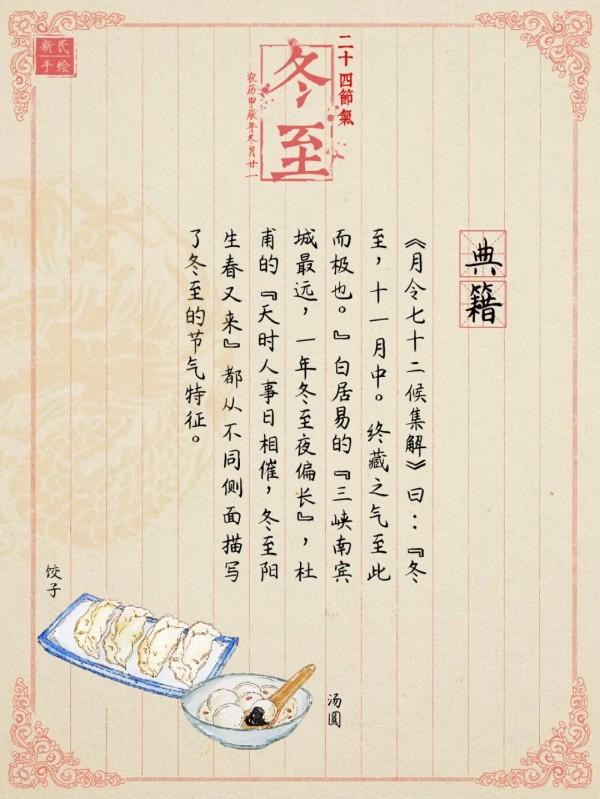 新民
手绘
二十四節氣
冬至
农历甲辰年冬月廿一
典籍
《月令七十二候集解》曰：『冬
至，十一月中。终藏之气至此
而极也。』白居易的『三峡南宾
城最远，一年冬至夜偏长』，杜
甫的『天时人事日相催，冬至阳
生春又来』都从不同侧面描写
了冬至的节气特征。
饺子
汤圆